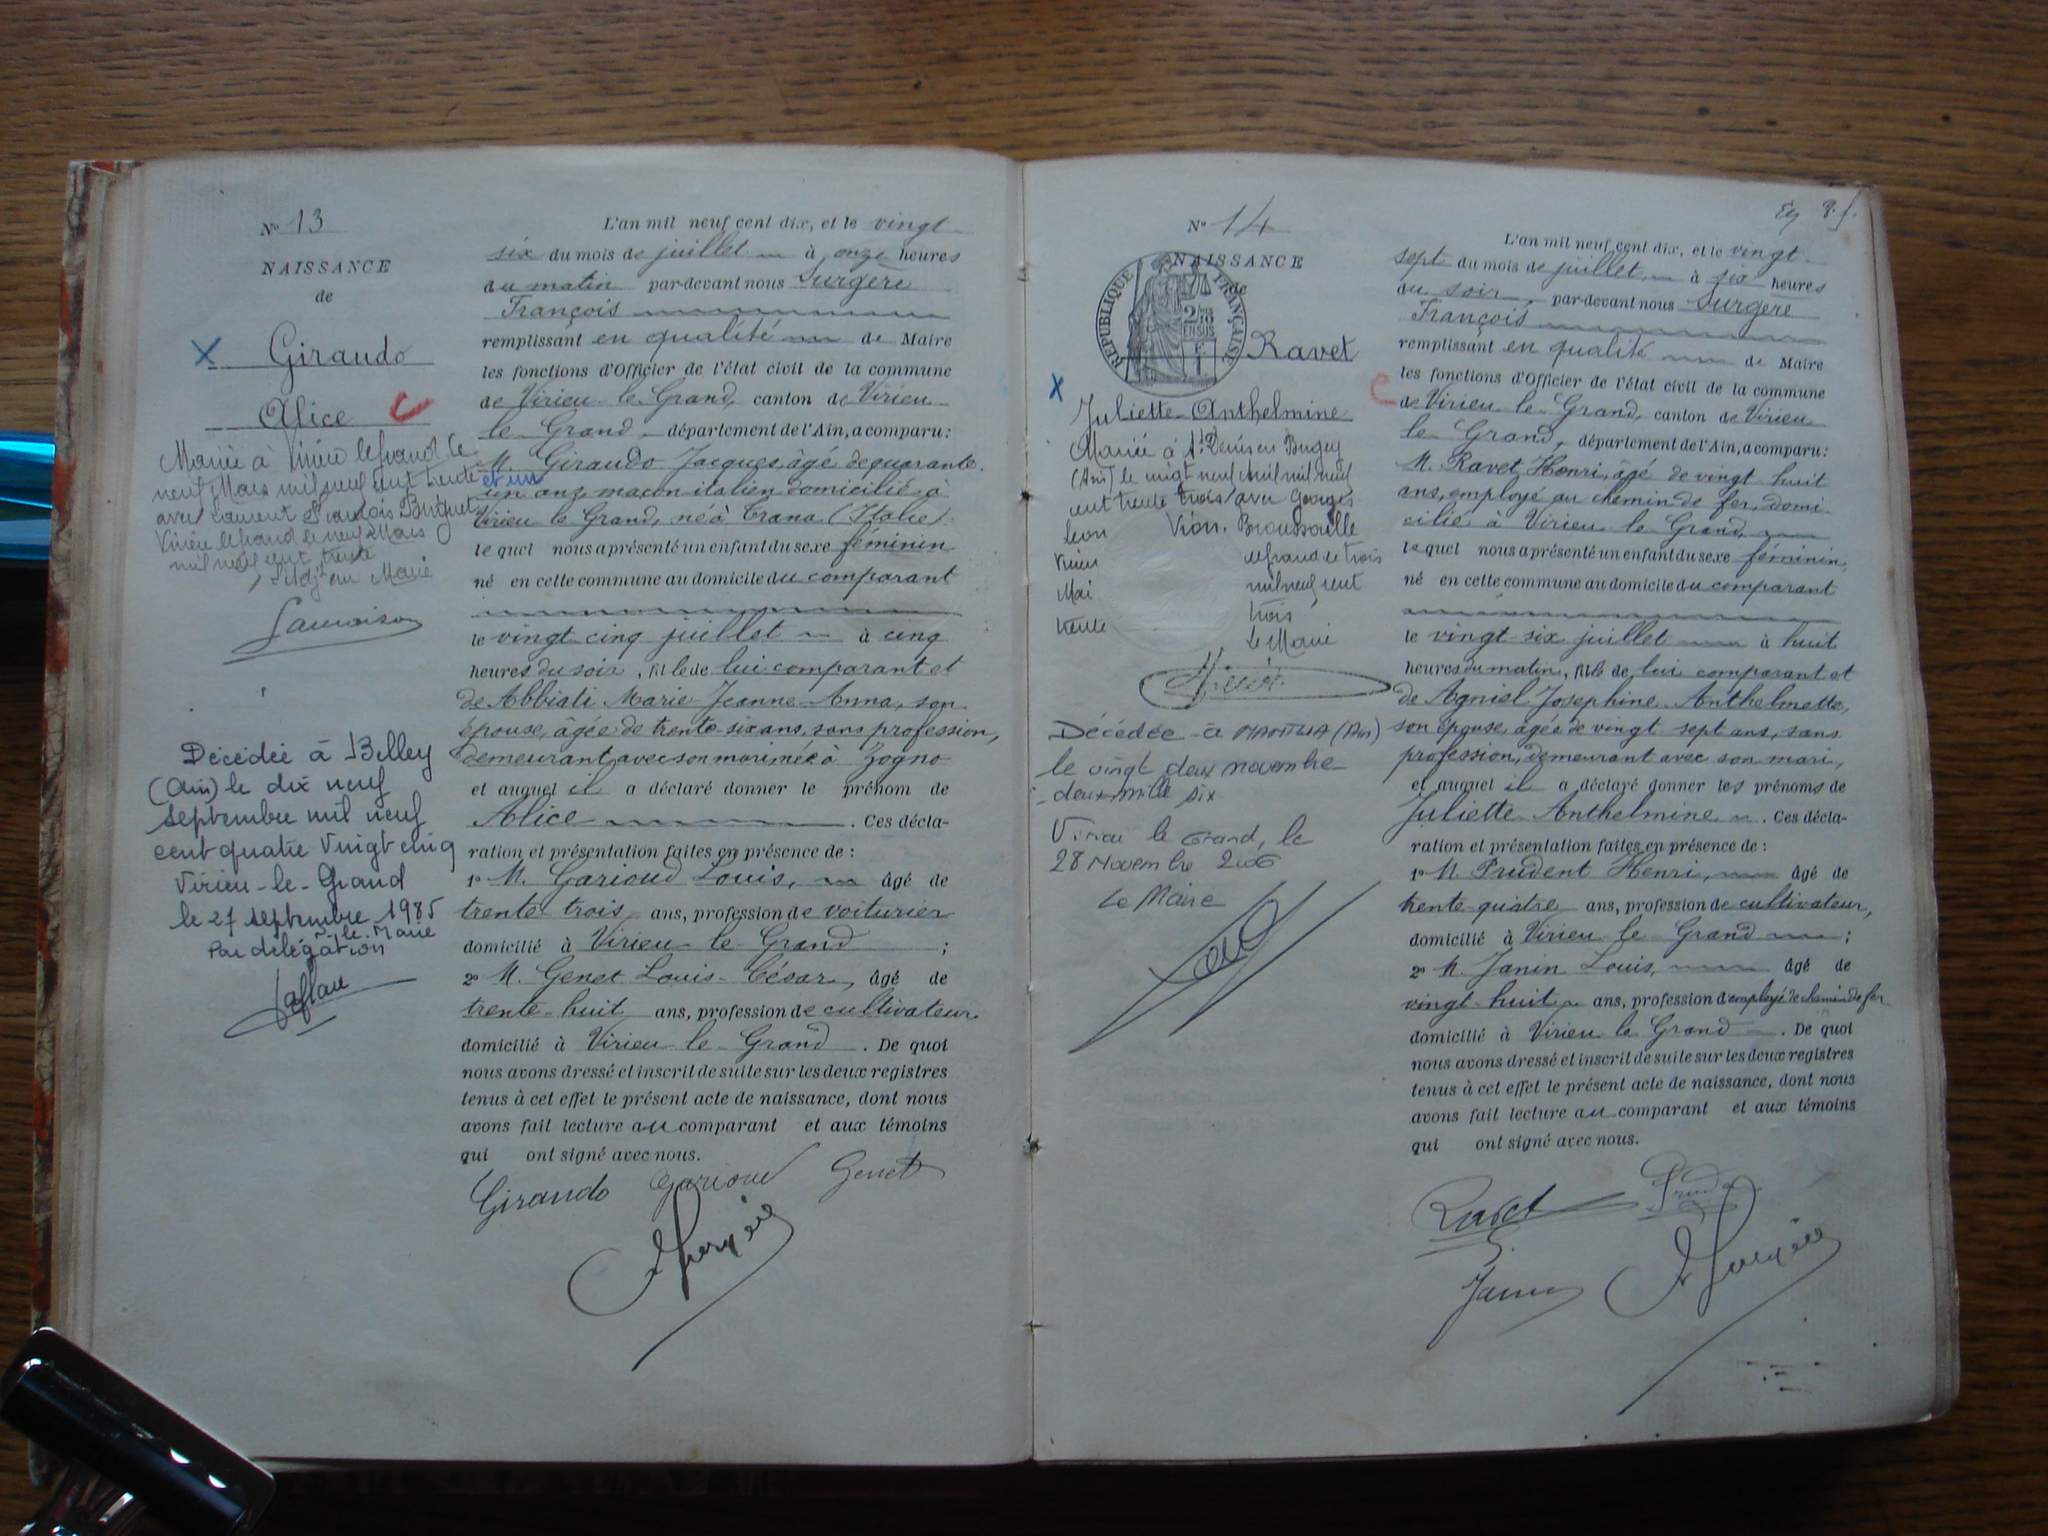 N° 13
NAISSANCE
de
Giraudo
Alice
Mariée à Virieu le Grand le
neuf Mars mil neuf cent trente
avec Laurent François
Virieu le Grand le neuf Mars
mil neuf cent trente
Maire
Décédée à Belley
(Ain) le dix neuf
septembre mil neuf
cent quatre vingt cinq
Virieu-le-Grand
le 27 septembre 1985
le Maire
Par délégation
L'an mil neuf cent dix, et le vingt
six du mois de juillet à onze heures
du matin par-devant nous Surgère
François
remplissant en qualité de Maire
les fonctions d'Officier de l'état civil de la commune
de Virieu-le-Grand, canton de Virieu-
le Grand département de l'Ain, a comparu :
M. Giraudo Jacques, âgé de quarante
et un
un ans, maçon italien domicilié à
Virieu le Grand, né à Trana (Italie)
lequel nous a présenté un enfant du sexe féminin
né en cette commune au domicile du comparant
le vingt cinq juillet à cinq
heures du soir, fille de lui comparant et
de Abbiati Marie-Jeanne-Anna, son
épouse, âgée de trente-six ans, sans profession,
demeurant avec son mari née à Zogno
et auquel il a déclaré donner le prénom de
Alice . Ces décla-
ration et présentation faites en présence de :
1° M. Garioud Louis, âgé de
trente trois ans, profession de voiturier
domicilié à Virieu-le-Grand ;
2° M. Genet Louis-César, âgé de
trente-huit ans, profession de cultivateur
domicilié à Virieu-le-Grand . De quoi
nous avons dressé et inscrit de suite sur les deux registres
tenus à cet effet le présent acte de naissance, dont nous
avons fait lecture au comparant et aux témoins
qui ont signé avec nous.
Giraudo Garioud Genet
Surgère
N° 14
NAISSANCE
de
RÉPUBLIQUE FRANÇAISE
2/10
EN SUS
Ravet
Juliette-Anthelmine
Mariée à St Denis en Bugey
(Ain) le vingt neuf avril mil neuf
cent trente trois avec Georges
Léon Vion. Broussaille
Virieu le Grand le trois
Mai mil neuf cent
trente trois
Le Maire
Décédée à NANTUA (Ain)
le vingt deux novembre
deux mille six
Virieu le Grand, le
28 Novembre 2006
Le Maire
L'an mil neuf cent dix, et le vingt
sept du mois de juillet à six heures
du soir par-devant nous Surgère
François
remplissant en qualité de Maire
les fonctions d'Officier de l'état civil de la commune
de Virieu le Grand, canton de Virieu
le Grand, département de l'Ain, a comparu :
M. Ravet Henri, âgé de vingt huit
ans, employé au chemin de fer, domi-
cilié à Virieu le Grand,
lequel nous a présenté un enfant du sexe féminin,
né en cette commune au domicile du comparant
le vingt-six juillet à huit
heures du matin, fille de lui comparant et
de Agniel Joséphine Anthelmette,
son épouse âgée de vingt sept ans, sans
profession, demeurant avec son mari,
et auquel il a déclaré donner les prénoms de
Juliette Anthelmine . Ces décla-
ration et présentation faites en présence de :
1° M. Prudent Henri, âgé de
trente quatre ans, profession de cultivateur,
domicilié à Virieu le Grand ;
2° M. Janin Louis, âgé de
vingt-huit ans, profession d'employé de chemin de fer
domicilié à Virieu le Grand . De quoi
nous avons dressé et inscrit de suite sur les deux registres
tenus à cet effet le présent acte de naissance, dont nous
avons fait lecture au comparant et aux témoins
qui ont signé avec nous.
Ravet
Surgère